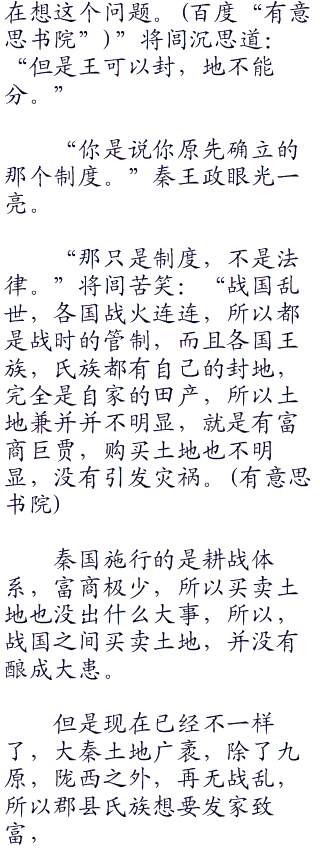 在想这个问题。(百度“有意
思书院”)”将闾沉思道：
“但是王可以封，地不能
分。”
“你是说你原先确立的
那个制度。”秦王政眼光一
亮。
“那只是制度，不是法
律。”将闾苦笑：“战国乱
世，各国战火连连，所以都
是战时的管制，而且各国王
族，氏族都有自己的封地，
完全是自家的田产，所以土
地兼并并不明显，就是有富
商巨贾，购买土地也不明
显，没有引发灾祸。(有意思
书院)
秦国施行的是耕战体
系，富商极少，所以买卖土
地也没出什么大事，所以，
战国之间买卖土地，并没有
酿成大患。
但是现在已经不一样
了，大秦土地广袤，除了九
原，陇西之外，再无战乱，
所以郡县氏族想要发家致
富，